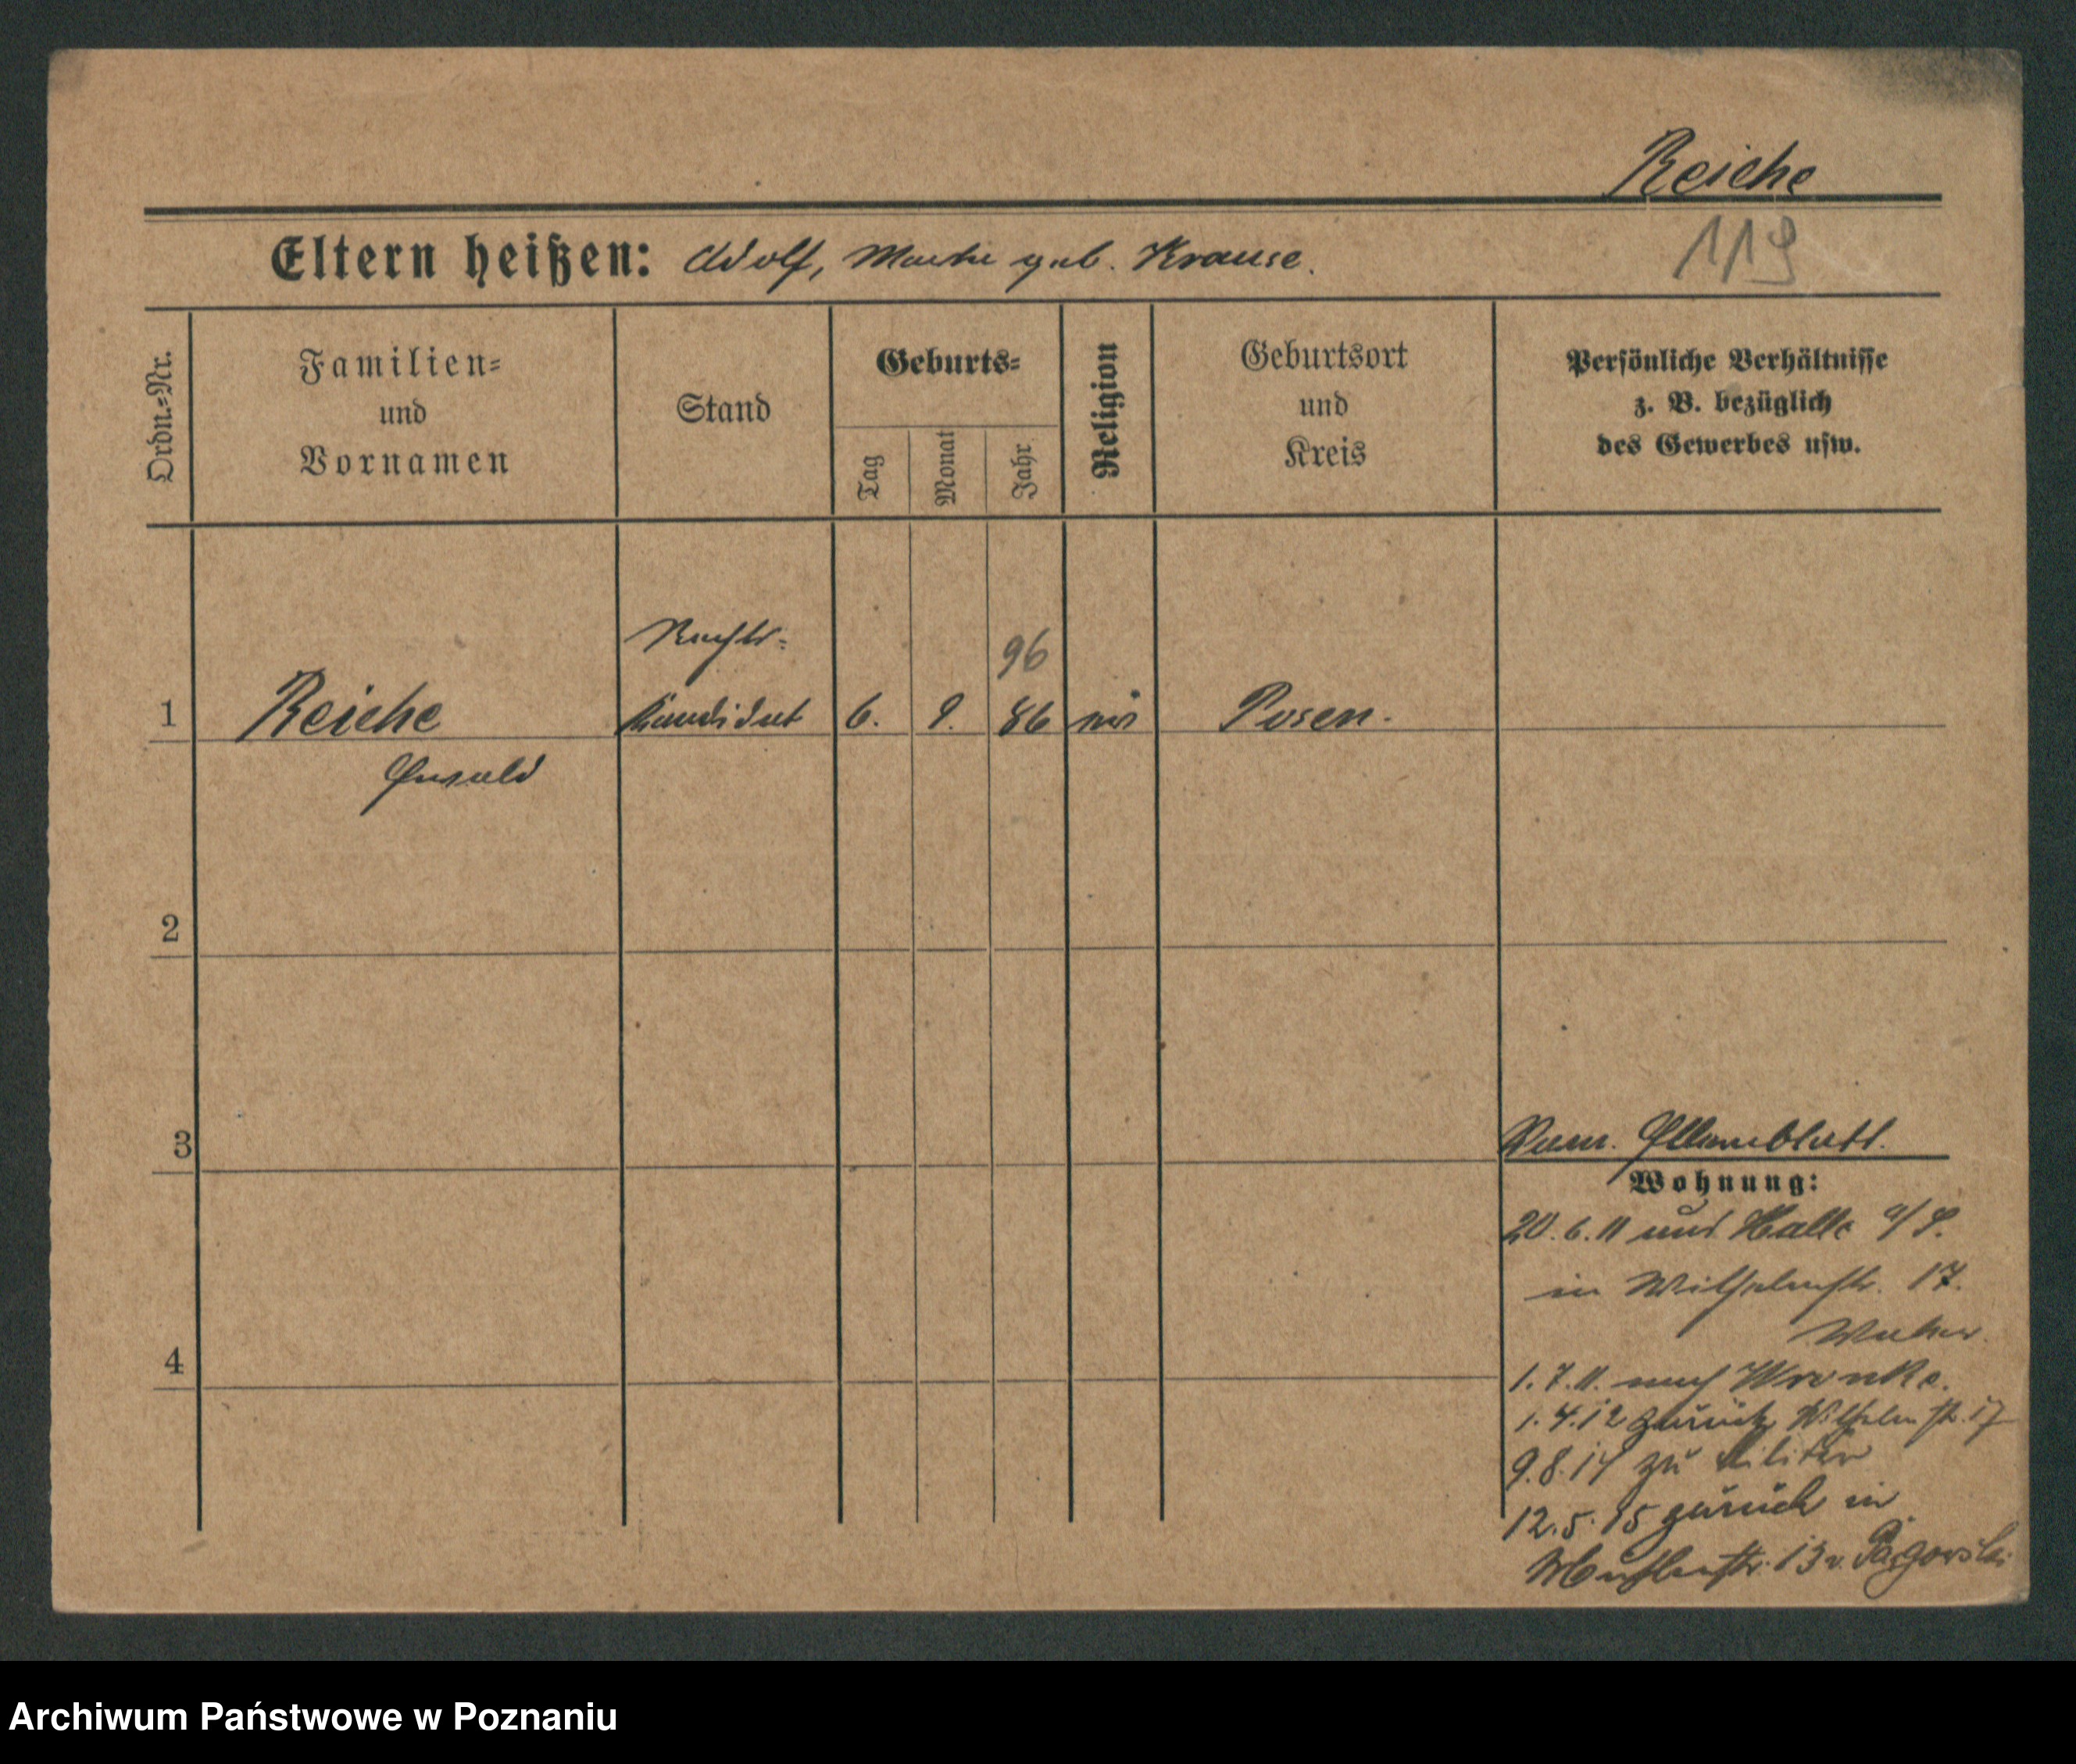 Reiche
Eltern heißen: Adolf, Martha geb. Krause.
119
Ordn.=Nr.
Familien=
und
Vornamen
Stand
Geburts=
Tag
Monat
Jahr
Religion
Geburtsort
und
Kreis
Persönliche Verhältnisse
z. B. bezüglich
des Gewerbes usw.
Rechts=
96
1 Reiche kandidat 6. 9. 86 mos Posen.
2
3
Elternblatt.
Wohnung:
20.6.11 aus Halle a/S.
in Wilhelmstr. 17.
4
1.7.11. nach Wronke.
1.4.12 zurück Wilhelmstr. 17
9.8.14 zu Militär
12.5.15 zurück in
13 v.
Archiwum Państwowe w Poznaniu